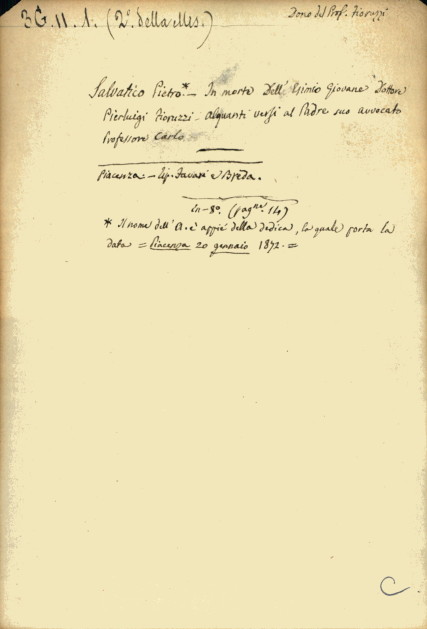 3G. 11. 1. (2º. della Mis.)
Dono del Prof. Fioruzzi
Salvatico Pietro* - In morte Dell' Esimio Giovane Dottore
Pierluigi Fioruzzi - Alquanti versi al Padre suo avvocato
Professore Carlo
Piacenza - Tip. Favari e Breda.
in-8º. (pagne. 14)
* Il nome dell'A. è appiè della dedica, la quale porta la
data = Piacenza 20 gennaio 1872. =
C.